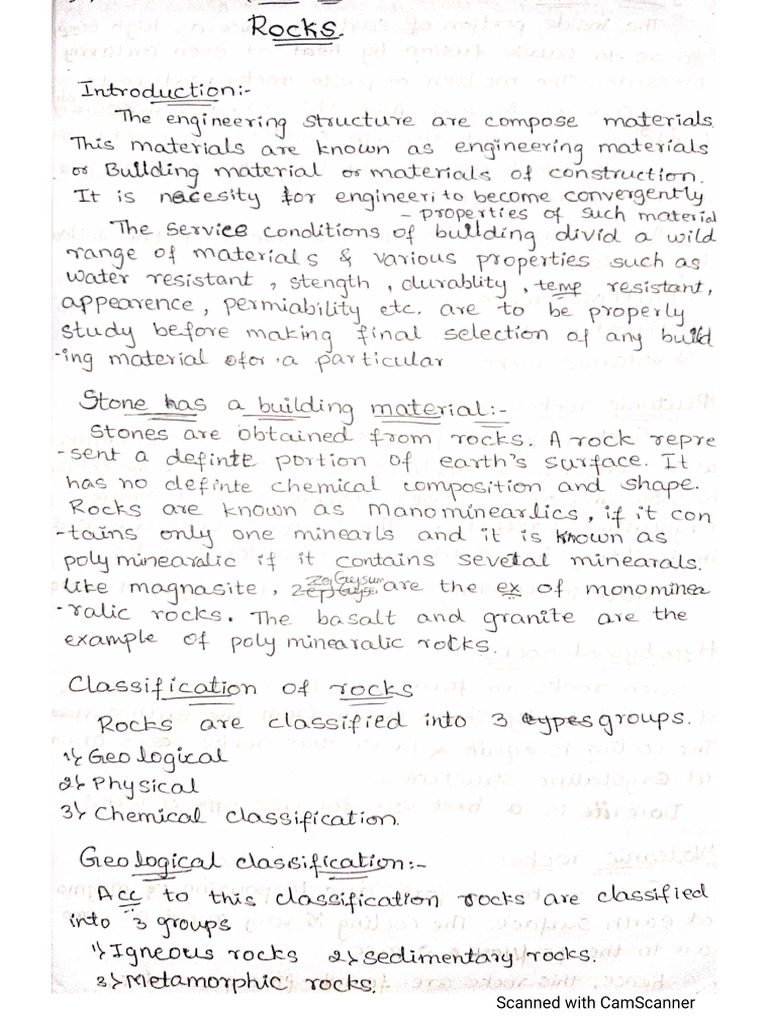 Rocks.
Introduction:-
The engineering structure are compose materials.
This materials are known as engineering materials
or Building material or materials of construction.
It is necesity for engineeri to become convergently
- properties of such material
The service conditions of building divid a wild
range of materials & various properties such as
water resistant, stength, durablity, temp resistant,
appearence, permiability etc. are to be properly
study before making final selection of any build
-ing material for a particular
Stone has a building material:-
Stones are obtained from rocks. A rock repre
-sent a definte portion of earth's surface. It
has no definte chemical composition and shape.
Rocks are known as manominearlics, if it con
-tains only one minearls and it is known as
polyminearalic if it contains several minearals.
like magnasite, are the ex of monominea
-ralic rocks. The basalt and granite are the
example of polyminearalic rocks.
Classification of rocks
Rocks are classified into 3 types groups.
1} Geological
2} Physical
3} Chemical classification.
Geological classification:-
Acc to this classification rocks are classified
into 3 groups
1} Igneous rocks 2} Sedimentary rocks.
3} Metamorphic rocks.
Scanned with CamScanner